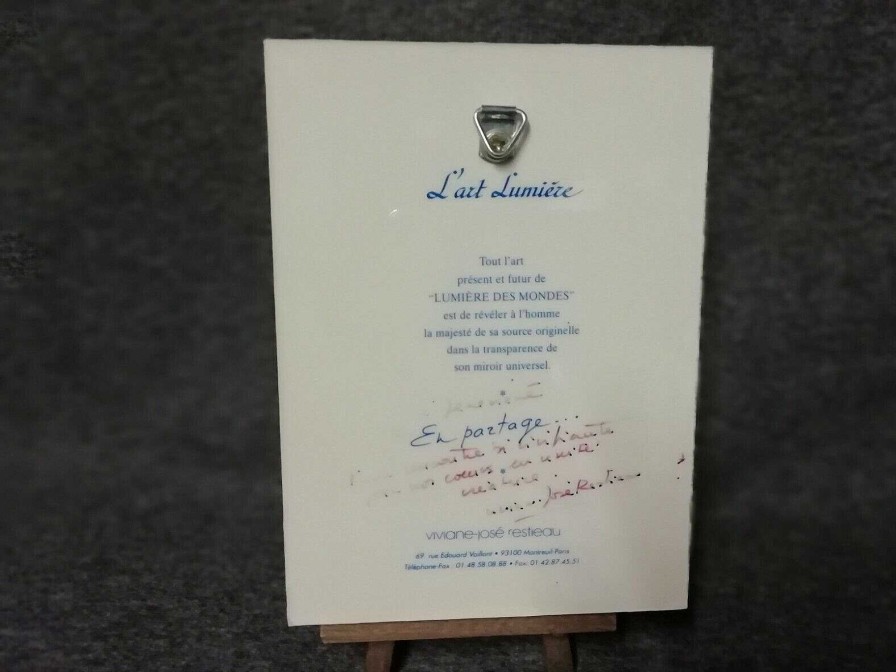 L'art Lumière
Tout l'art
présent et futur de
"LUMIÈRE DES MONDES"
est de révéler à l'homme
la majesté de sa source originelle
dans la transparence de
son miroir universel.
En partage...
viviane-josé restieau
69 rue Edouard Vaillant • 93100 Montreuil Paris
Téléphone-Fax : 01 48 58 08 88 • Fax: 01 42 87 45 51